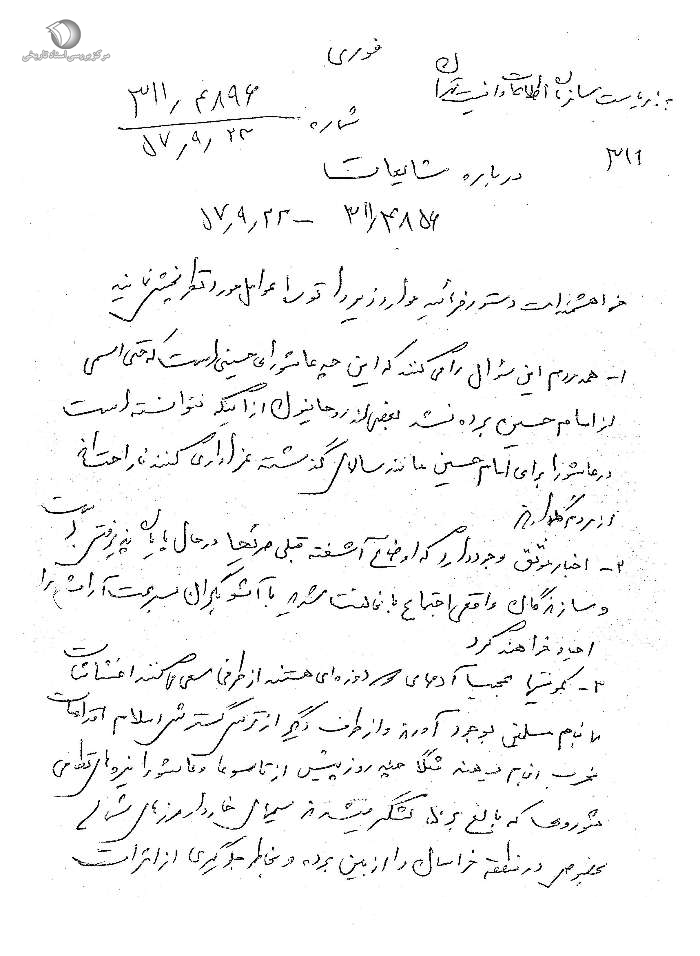 مرکز بررسی اسناد تاریخی
فوری
به: ریاست سازمان اطلاعات و امنیت تهران
شماره ۳۱۱/۴۸۹۶
۵۷/۹/۲۳
۳۱۲
درباره شایعات
۳۱۱/۴۸۵۶ – ۵۷/۹/۲۲
خواهشمند است دستور فرمائید موارد زیر را توسط عوامل مورد نظر پخش نمایند
۱- مردم این سؤال را می کنند که این چه عاشورای حسینی است که حتی اسمی
از امام حسین برده نشد بعضی از روحانیون از اینکه نتوانسته است
در عاشورا برای امام حسین مانند سالهای گذشته عزاداری کنند ناراحت و
از مردم گله دارند
۲- اخبار موثق وجود دارد که اوضاع آشفته قبلی در حال پایان پذیرفتن است
و سازندگان واقعی اجتماع با مخالفت شدید با آشوبگران بسرعت آرامش را
ایجاد خواهند کرد
۳- کمونیستها عجب آدمهای دوروئی هستند از طرفی سعی می کنند اغتشاشات
بنام مسلمین بوجود آورند و از طرف دیگر از ترس گسترش اسلام اقدامات
مخرب انجام میدهند مثلا چند روز پیش از تاسوعا و عاشورا نیروهای نظامی
شوروی که بالغ بر لشگر میشدند سیمهای خاردار مرزهای شمالی
بخصوص در منطقه خراسان را از بین برده و بخاطر جلوگیری از اثرات